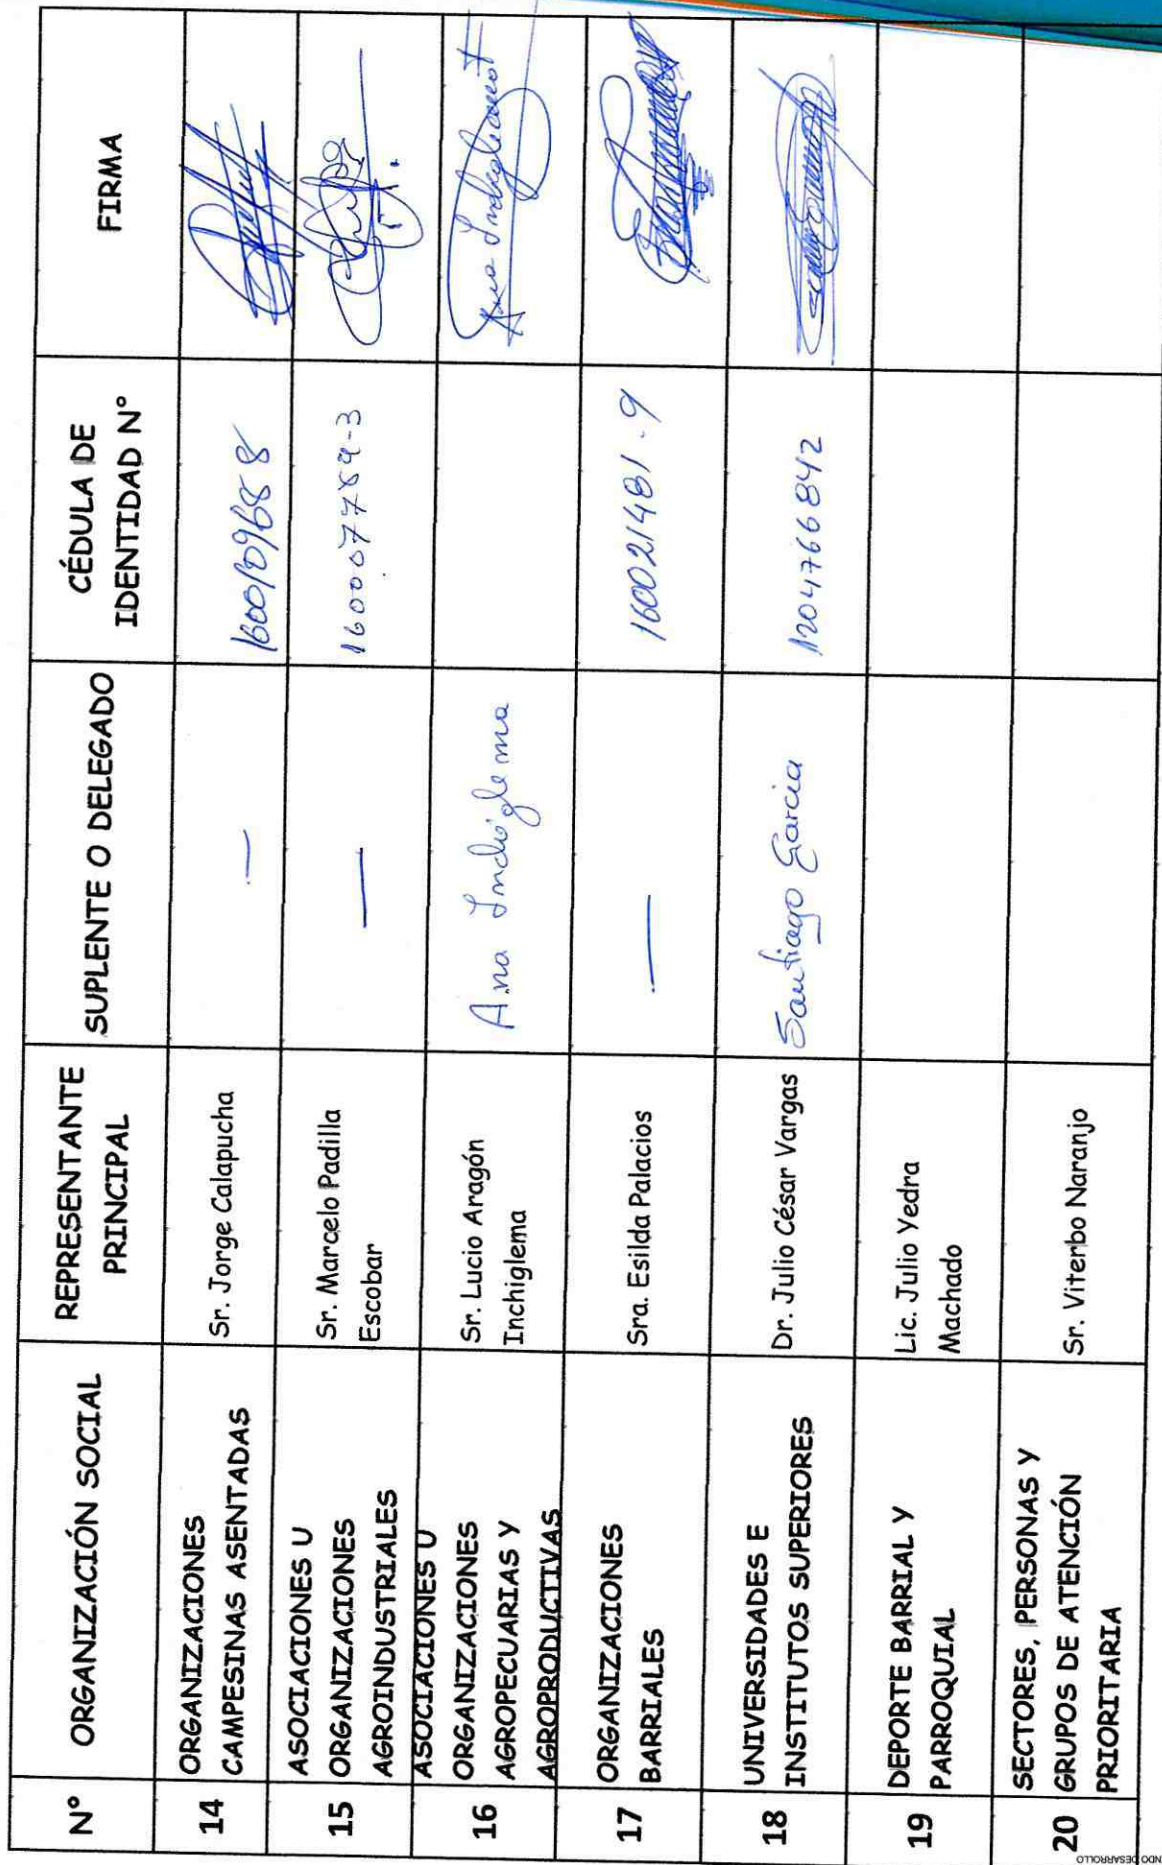 N° ORGANIZACIÓN SOCIAL REPRESENTANTE PRINCIPAL SUPLENTE O DELEGADO CÉDULA DE IDENTIDAD N° FIRMA
14 ORGANIZACIONES
CAMPESINAS ASENTADAS
Sr. Jorge Calapucha
—
1600109688
15 ASOCIACIONES U
ORGANIZACIONES
AGROINDUSTRIALES
Sr. Marcelo Padilla
Escobar
—
160007789-3
16 ASOCIACIONES U
ORGANIZACIONES
AGROPECUARIAS Y
AGROPRODUCTIVAS
Sr. Lucio Aragón
Inchiglema
Ana Indiglema
17 ORGANIZACIONES
BARRIALES
Sra. Esilda Palacios
—
160021481-9
18 UNIVERSIDADES E
INSTITUTOS SUPERIORES
Dr. Julio César Vargas
Santiago Garcia
1204766842
19 DEPORTE BARRIAL Y
PARROQUIAL
Lic. Julio Yedra
Machado
20 SECTORES, PERSONAS Y
GRUPOS DE ATENCIÓN
PRIORITARIA
Sr. Viterbo Naranjo
NDO DESARROLLO